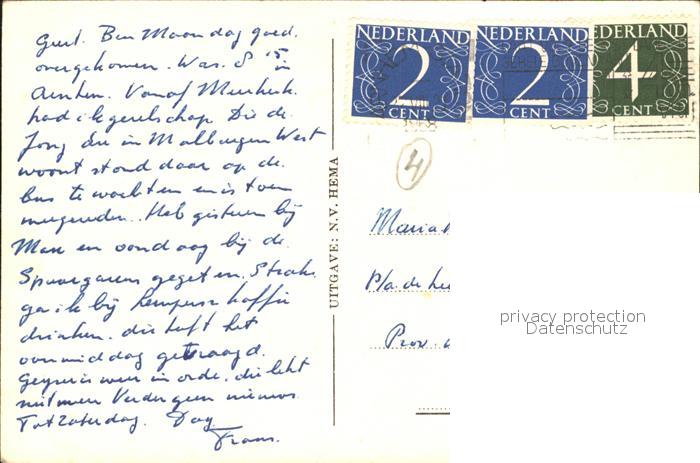 Geert. Ben Maandag goed.
overgekomen. Was 8 15 in
Arnhem. Vanaf
had ik gezelschap Die de
Jong die in Malburgen West
woont stond daar op de
bus te wachten en is toen
meegereden. Heb gisteren bij
Max en vandaag bij de
Spaargarens gegeten. Straks
ga ik bij Kempers koffie
drinken. die heeft het
vanmiddag gevraagd.
Geyser is weer in orde. die lekt
niet meer Verder geen nieuws.
Tot Zaterdag. Dag
Frans.
UITGAVE: N.V. HEMA
NEDERLAND
2
CENT
NEDERLAND
2
CENT
NEDERLAND
4
CENT
4
Maria
P/a. de
Prov.
privacy protection
Datenschutz